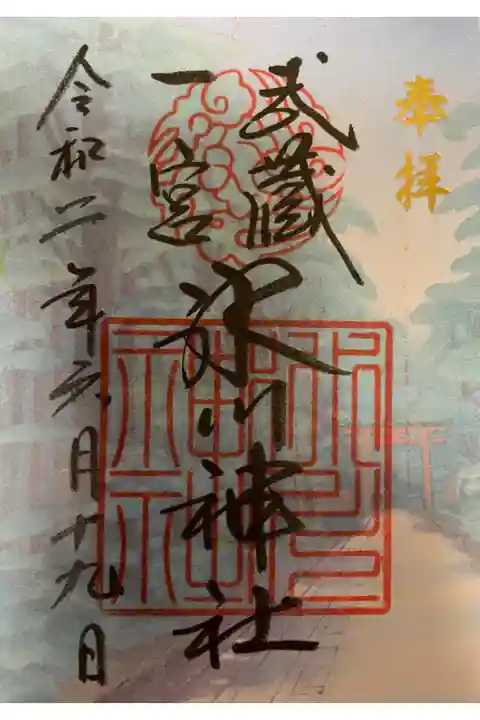 奉拝
武蔵
一宮
氷川神社
令和二年六月十九日
氷川
神社